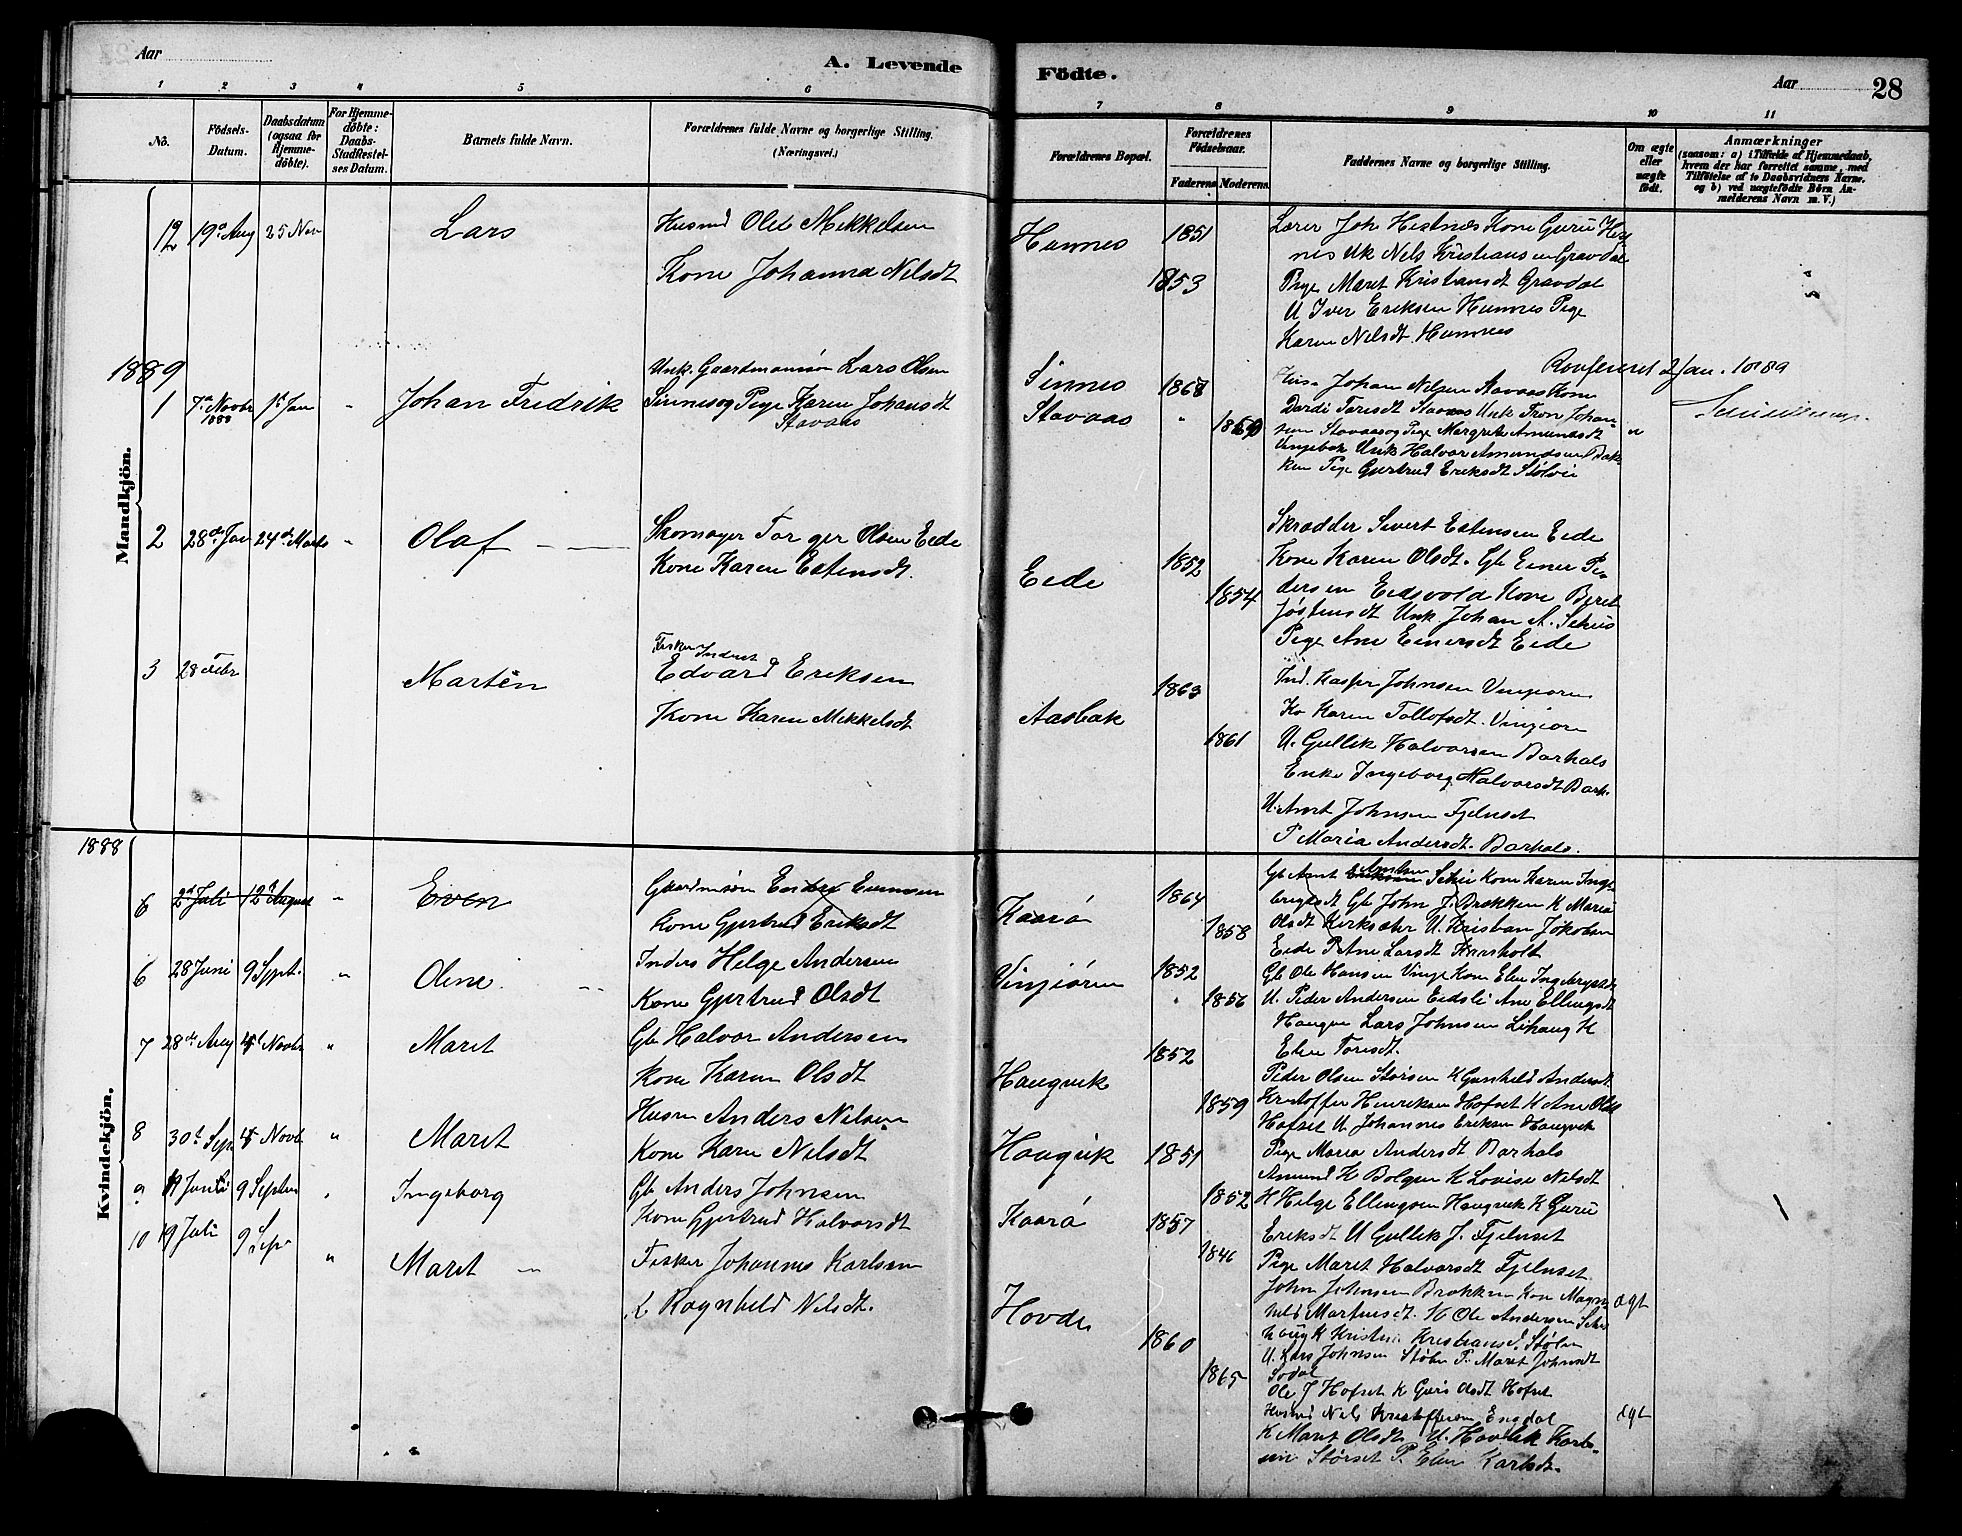 Aar
A. Levende
Födte.
Aar
28
1 2 3 4 5 6
7 8 9 10 11
No.
Födsels-Datum.
Daabsdatum (ogsaa for Hjemmedöbte).
For Hjemmedöbte: Daabs-Stadfæstelses Datum.
Barnets fulde Navn.
Forældrenes fulde Navne og borgerlige Stilling. (Næringsvei.)
Forældrenes Bopæl.
Forældrenes Födselsaar.
Faderens Moderens
Faddernes Navne og borgerlige Stilling.
Om ægte eller uægte födt.
Anmærkninger
(saasom: a) i Tilfælde af Hjemmedaab, hvem der har forrettet samme, med Tilföielse af to Daabsvidners Navne, og b) ved uægtefödte Börn Anmelderens Navn m. V.)
Mandkjön.
12 19de Aug 25 Nov Lars
Husmd Ole Mikkelsen
Kone Johanna Nilsdt
Humnes 1851
1853
Lærer Joh Hestnæs Kone Guru Hest
nes Uk Nels Kristiansen Gravdal
Pige Maret Kristiansdt Gravdal
U Iver Eriksen Humnes Pige
Karen Nilsdt. Humnes
1889
1 7de Novbr 1888 1st Jan " Johan Fredrik
Unk. Gaardmansøn Lars Olsen
Sinnes og Pige Karen Johansdt
Stavaas
Sinnes 1868
Stavaas "
Johan Nilsen Stavaas Kone
Dardi Toresdt Stavaas Unk Tron Johan-
sen Stavaas og Pige Margrete Amundsdt
Unk Halvor Amundsen Bak
ken Pige Gjertrud Eriksdt Stølvie
u
Confirmert 2 Jan. 1889
2 28de Jan 24de Marts " Olaf
Skomager Torger Olsen Eide
Kone Karen Estensdt.
Eide 1852
1854
Skrædder Sivert Estensen Eide
Kone Karen Olsdt. Gb Einer Pe-
dersen Eidsvold Kone Beret
Jøstensdt Unk. Johan A. Schei
Pige Ane Einersdt Eide
3 28 Febr Martin
Fisker Inderst
Edvard Eriksen
Kone Karen Mikkelsdt
Aasbak 1863
1861
Ind. Kasper Johnsen Vingiorn
Ko Karen Tollofsdt. Vingiorn
U. Gullik Halvorsen Barhals
Enke Ingeborg Halvorsdt Bark.
U. Arnt Johnsen Fjelnset
P Maria Andersdt. Barhals.
1888
Kvindekjön.
6 2d Juli 12te August " Even
Gaardmsøn Ender Evensen
Kone Gjertrud Eriksdt
Kaarø 1864
1858
Gb Arnt Arntsen Schei Kone Karen Inge
brigtsdt Gb John J. Brækken K Maria
Olsdt Kirksæter U. Kristian Jakobsen
Eide P Ane Larsdt Kaarholt
6 28 Juni 9 Sept. " Oline
Inders Helge Andersen
Kone Gjertrud Olsdt
Vingiørn 1852
1856
Gb Ole Hansen Vinge Kone Elen Ingebrigtsdt
U. Peder Andersen Eidsli Ane Ellingsdt
Haugen Lars Johnsen Lihaug K
Elen Toresdt.
7 28de Aug 4st Novbr " Maret
Gb Halvor Andersen
Kone Karen Olsdt
Haugvik 1852
1859
Peder Olsen Storsen K Gunhild Andersdt
Kristoffer Henriksen Hofset K Ane Olsdt
Hofset U Johannes Eriksen Haugvik
Pige Maria Andersdt Barhals
8 30t Sep 4 Novb. " Maret
Husm Anders Nilsen
Kone Karen Nilsdt
Haugvik 1851
1852
Amund H Bolgen K Lovise Nilsdt
H Helge Ellingsen Haugvik K Guru
Eriksdt U Gullik J. Fjelnset
Pige Maret Halvorsdt Fjelnset
9 19 Juni 9 Septem " Ingeborg
Gb Anders Johnsen
Kone Gjertrud Halvorsdt
Kaarø 1857
1846
John Johnsen Brækken Kone Magn-
hild Martinsdt. H Ole Andersen Schei
haug K Kristine Kristiansd. Stølen
U. Lars Johnsen Stølen P. Maret Johnsdt
Sodal
ægt
10 19 Juli 9 Sep " Maret
Fisker Johannes Karlsen
K Ragnhild Nilsdt.
Hovde 1860
1865
Ole J Hofset K Guri Olsdt Hofset
Husmd Nils Kristoffersen Engdal
K Maret Olsdt U. Karl-
sen Størset P. Elen Karlsdt.
ægt